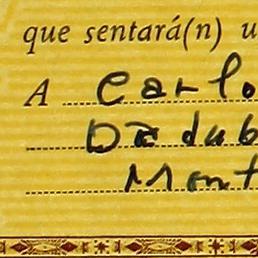 que sentará(n) u
A Carlo
De dub
Mont